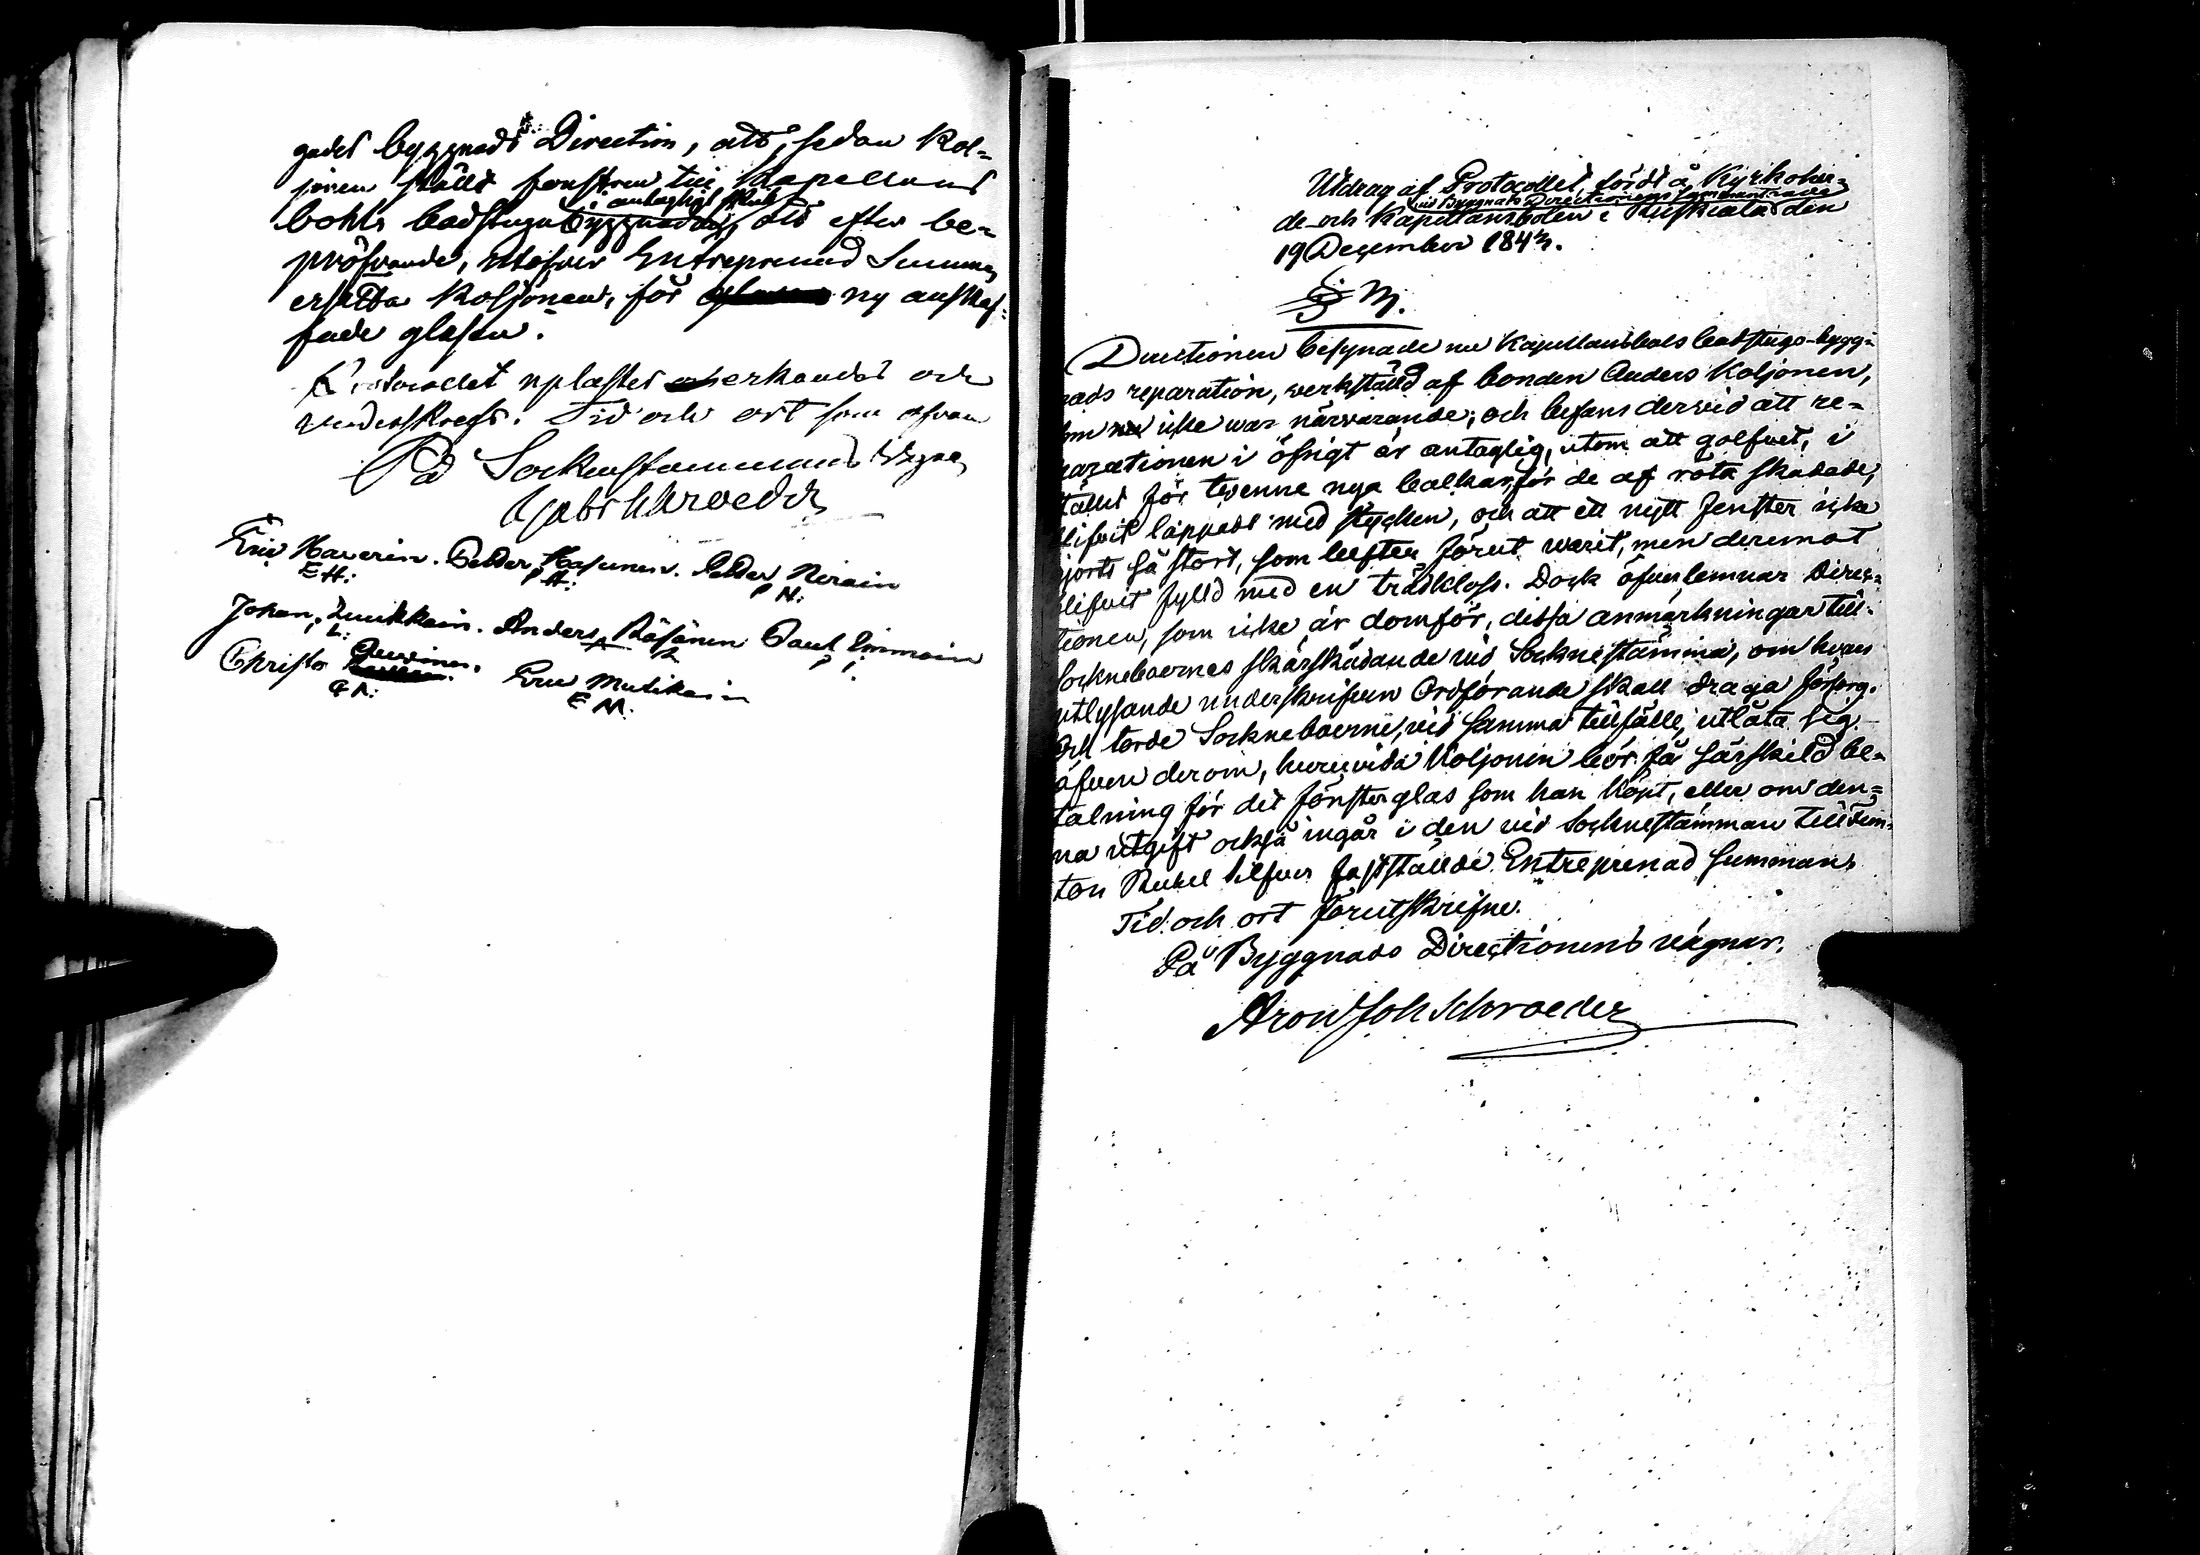 gades byggnads Direction, att, sedan Kol=
jonen ställt fenstren till Kapellans
bohls badstugu byggnad i antagligt skick, att efter be=
pröfvande, utöfver Entreprenad Summan
ersätta Koljonen, för ny anskaf=
fade glasen.
Protocollet uplästes erkändes och
underskrefs. Tid och ort som ofvan
På Sockenstämmans vägnar
Eric Haverin. Petter Hasunen. Petter Nirain
E H: P H: P N:
Johan Luukkain. Anders Räsänen Paul Immain
L: A R P I:
Christo
Eric Mutikain
E M:
Utdrag af Protocollet, fördt å Kyrkoher=
vid Byggnads Directionens sammanträde
de- och Kapellansbolen i Ruskiala den
19 December 1843.
§ 3.
Directionen besynade nu Kapellansbols badstugo-bygg=
nads reparation, verkställd af bonden Anders Koljonen,
som icke war närvarande; och befans dervid att re=
parationen i öfrigt är antaglig, utom att golfvet, i
stället för tvenne nya balkar, för de af röta skadade,
blifvit lappadt med stycken, och att ett nytt fenster icke
gjorts så stort, som luften förut warit, men deremot
blifvit fylld med en trädkloss. Dock öfverlemnar Direc=
tionen, som icke är domför, dessa anmärkningar till
Socknebornes skärskådande vid Socknestämma, om hvars
utlysande underskrifven Ordförande skall draga försorg.
Och torde Socknebоerne, vid samma tillfälle, utlåta sig
äfven derom, huruvida Koljonen bör få särskild be=
talning för det fönsterglas som han köpt, eller om den=
na utgift också ingår i den vid Sockenstämman till fem=
ton Rubel silfver fastställde Entreprenad summan.
Tid och ort förutskrifne.
På Byggnads Directionens vägnar,
Aron Joh Schroeder